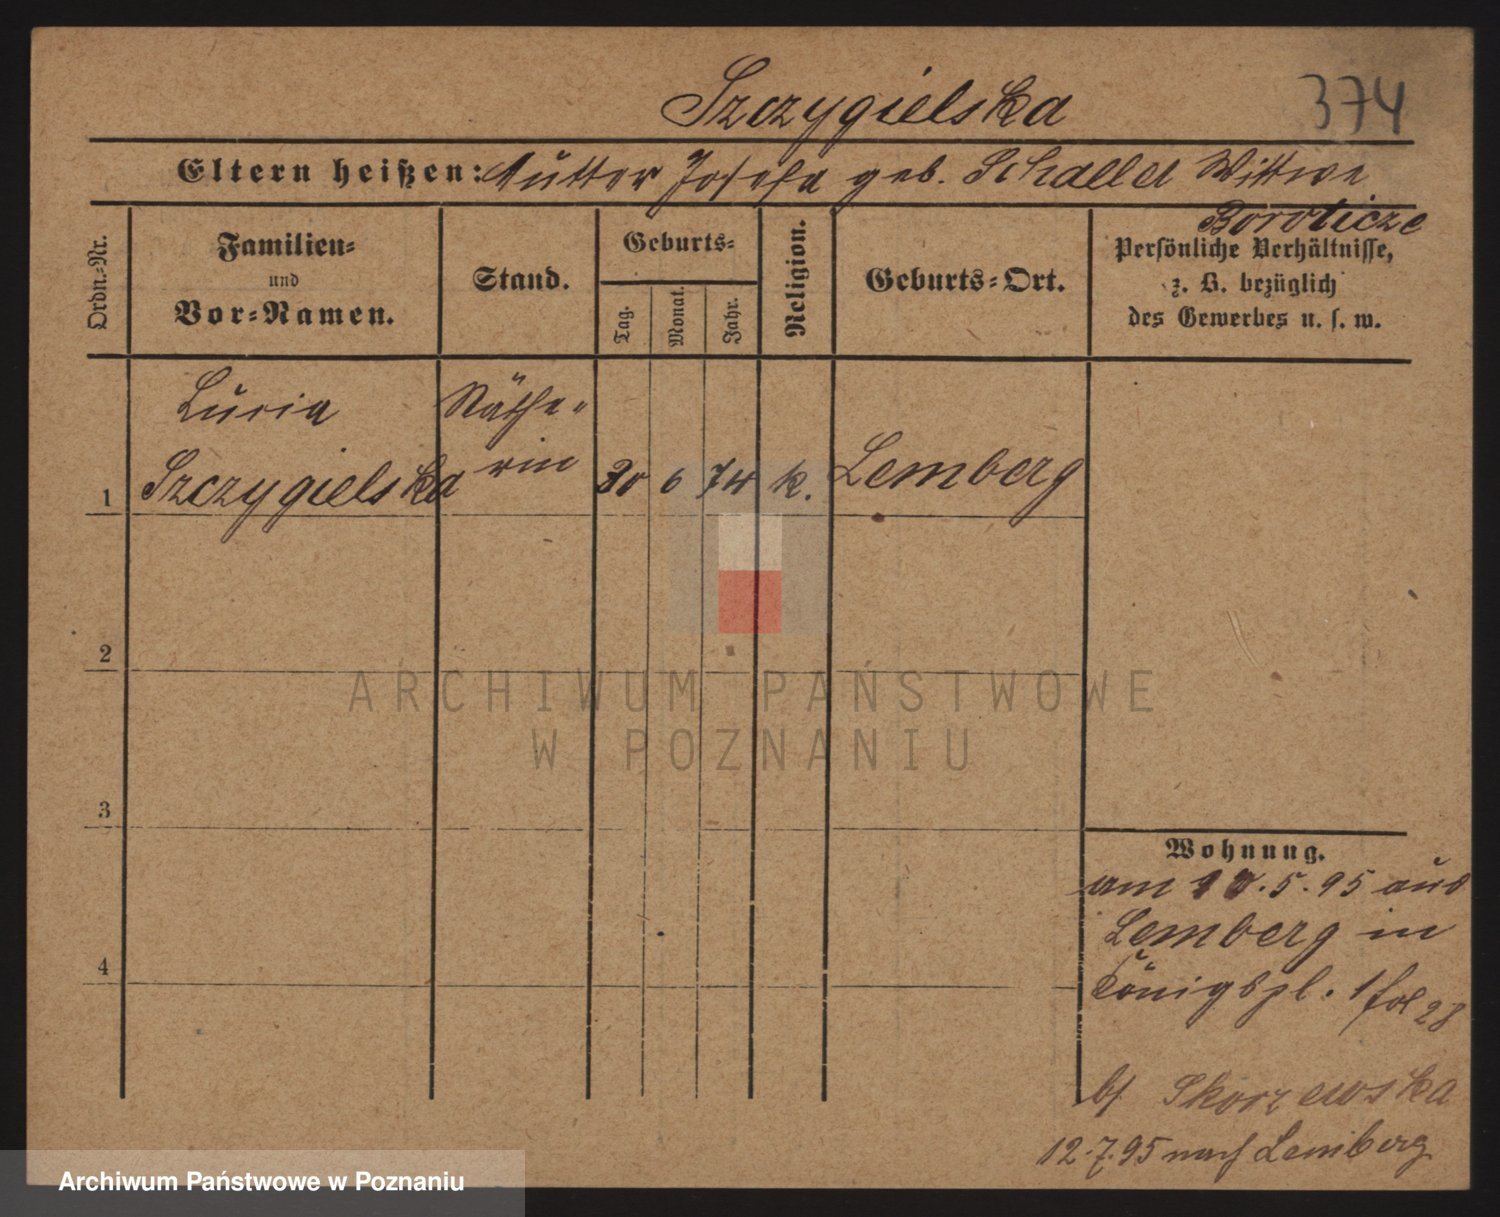 Szczygielska
374
Eltern heißen: Mutter Josefa geb. Schaller Wittwe
Boroticze
Ordn.-Nr.
Familien-
und
Vor-Namen.
Stand.
Geburts-
Tag.
Monat.
Jahr.
Religion.
Geburts-Ort.
Persönliche Verhältnisse,
z. B. bezüglich
des Gewerbes u. s. w.
Luria Näthe-
1 Szczygielska rin 30 6 74 k. Lemberg
2
3
4
Wohnung.
am 10.5.95 aus
Lemberg in
Königspl. 1 fol 28
bf Skorzewska
12.7.95 nach Lemberg
ARCHIWUM PAŃSTWOWE
W POZNANIU
Archiwum Państwowe w Poznaniu